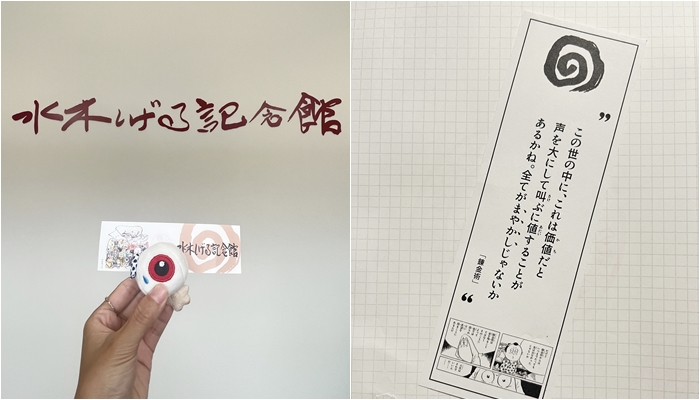 水木しげる記念館
水木しげる記念館
この世の中に、これは価値だと
声を大にして叫ぶに値することが
あるかね。全てがまやかしじゃないか
「錬金術」